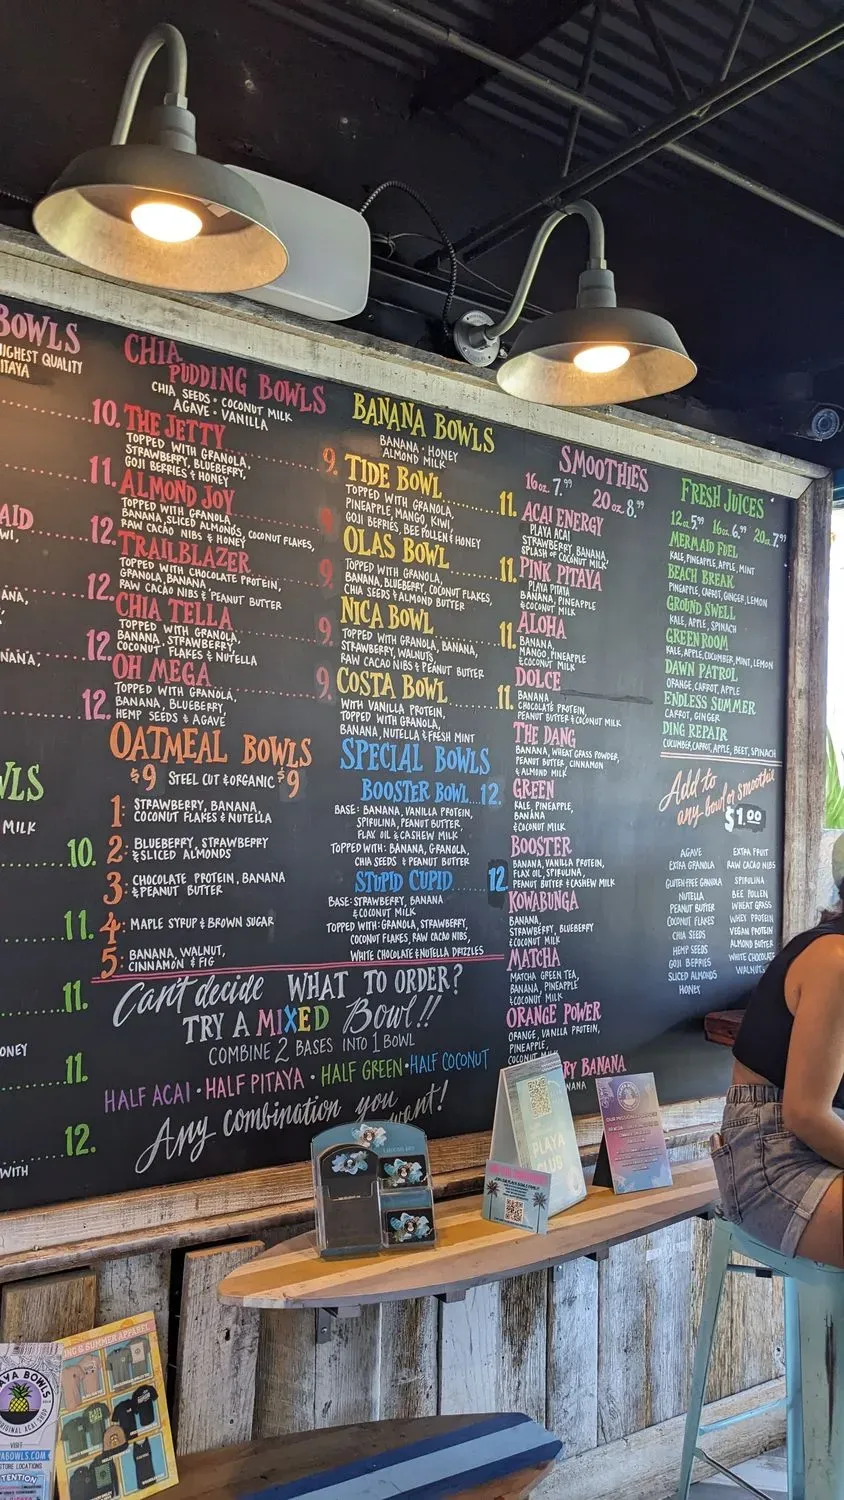 BOWLS
HIGHEST QUALITY
ITAYA
10.
11.
AID
12.
12.
12.
12.
CHIA
PUDDING BOWLS
CHIA SEEDS • COCONUT MILK
AGAVE • VANILLA
THE JETTY
9.
TOPPED WITH GRANOLA,
STRAWBERRY, BLUEBERRY,
GOJI BERRIES & HONEY
ALMOND JOY
9.
TOPPED WITH GRANOLA,
BANANA, SLICED ALMONDS, COCONUT FLAKES,
RAW CACAO NIBS & HONEY
TRAILBLAZER
9.
TOPPED WITH CHOCOLATE PROTEIN,
GRANOLA, BANANA
RAW CACAO NIBS & PEANUT BUTTER
CHIA TELLA
9.
TOPPED WITH GRANOLA,
BANANA, STRAWBERRY,
COCONUT FLAKES & NUTELLA
OH MEGA
9.
TOPPED WITH GRANOLA,
BANANA, BLUEBERRY
HEMP SEEDS & AGAVE
OATMEAL BOWLS
$9 STEEL CUT & ORGANIC $9
1: STRAWBERRY, BANANA,
COCONUT FLAKES & NUTELLA
2: BLUEBERRY, STRAWBERRY
& SLICED ALMONDS
3: CHOCOLATE PROTEIN, BANANA
& PEANUT BUTTER
4: MAPLE SYRUP & BROWN SUGAR
5: BANANA, WALNUT,
CINNAMON & FIG
BANANA BOWLS
BANANA • HONEY
ALMOND MILK
TIDE BOWL
11.
TOPPED WITH GRANOLA,
PINEAPPLE, MANGO, KIWI,
GOJI BERRIES, BEE POLLEN & HONEY
OLAS BOWL
11.
TOPPED WITH GRANOLA,
BANANA, BLUEBERRY, COCONUT FLAKES,
CHIA SEEDS & ALMOND BUTTER
NICA BOWL
11.
TOPPED WITH GRANOLA, BANANA,
STRAWBERRY, WALNUTS,
RAW CACAO NIBS & PEANUT BUTTER
COSTA BOWL
11.
WITH VANILLA PROTEIN,
TOPPED WITH GRANOLA,
BANANA, NUTELLA & FRESH MINT
SPECIAL BOWLS
BOOSTER BOWL 12.
BASE: BANANA, VANILLA PROTEIN,
SPIRULINA, PEANUT BUTTER,
FLAX OIL & CASHEW MILK
TOPPED WITH: BANANA, GRANOLA,
CHIA SEEDS & PEANUT BUTTER
STUPID CUPID 12.
BASE: STRAWBERRY, BANANA
& COCONUT MILK
TOPPED WITH: GRANOLA, STRAWBERRY,
COCONUT FLAKES, RAW CACAO NIBS,
WHITE CHOCOLATE & NUTELLA DRIZZLES
Can't decide WHAT TO ORDER?
TRY A MIXED Bowl!!
COMBINE 2 BASES INTO 1 BOWL
HALF ACAI • HALF PITAYA • HALF GREEN • HALF COCONUT
Any combination you want!
SMOOTHIES
16 oz. 7.99 20 oz 8.99
ACAI ENERGY
PLAYA ACAI
STRAWBERRY, BANANA,
SPLASH OF COCONUT MILK
PINK PITAYA
PLAYA PITAYA
BANANA, PINEAPPLE
& COCONUT MILK
ALOHA
BANANA,
MANGO, PINEAPPLE
& COCONUT MILK
DOLCE
BANANA
CHOCOLATE PROTEIN,
PEANUT BUTTER & COCONUT MILK
THE DANG
BANANA, WHEAT GRASS POWDER,
PEANUT BUTTER, CINNAMON
& ALMOND MILK
GREEN
KALE, PINEAPPLE,
BANANA
& COCONUT MILK
BOOSTER
BANANA, VANILLA PROTEIN,
FLAX OIL, SPIRULINA,
PEANUT BUTTER & CASHEW MILK
KOWABUNGA
BANANA,
STRAWBERRY, BLUEBERRY
& COCONUT MILK
MATCHA
MATCHA GREEN TEA,
BANANA, PINEAPPLE
& COCONUT MILK
ORANGE POWER
ORANGE, VANILLA PROTEIN,
PINEAPPLE,
COCONUT
RY BANANA
NANA
FRESH JUICES
12 oz. 5.99 16 oz. 6.99 20 oz. 7.99
MERMAID FUEL
KALE, PINEAPPLE, APPLE, MINT
BEACH BREAK
PINEAPPLE, CARROT, GINGER, LEMON
GROUND SWELL
KALE, APPLE, SPINACH
GREEN ROOM
KALE, APPLE, CUCUMBER, MINT, LEMON
DAWN PATROL
ORANGE, CARROT, APPLE
ENDLESS SUMMER
CARROT, GINGER
DING REPAIR
CUCUMBER, CARROT, APPLE, BEET, SPINACH
Add to
any bowl or smoothie
$1.00
AGAVE
EXTRA GRANOLA
GLUTEN FREE GRANOLA
NUTELLA
PEANUT BUTTER
COCONUT FLAKES
CHIA SEEDS
HEMP SEEDS
GOJI BERRIES
SLICED ALMONDS
HONEY
EXTRA FRUIT
RAW CACAO NIBS
SPIRULINA
BEE POLLEN
WHEAT GRASS
WHEY PROTEIN
VEGAN PROTEIN
ALMOND BUTTER
WHITE CHOCOLATE
WALNUTS
ANA,
NANA,
WLS
MILK
10.
11.
11.
ONEY
11.
12.
WITH
PLAYA
CLUB
NG & SUMMER APPAREL
AYA BOWLS
ORIGINAL ACAI SHOP
VISIT
ABOWLS.COM
STORE LOCATIONS
TENTION